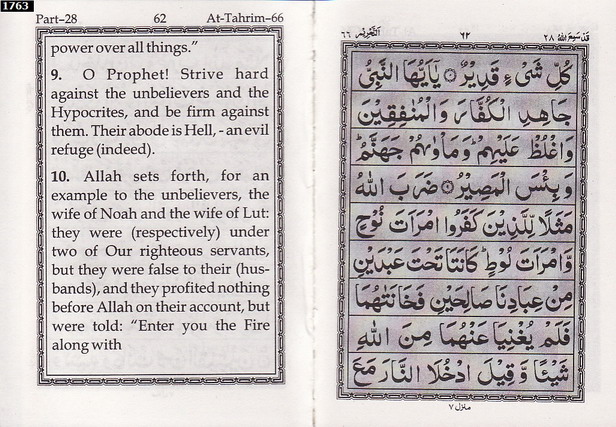 1763
Part–28 62 At-Tahrim–66
power over all things.”
9. O Prophet! Strive hard
against the unbelievers and the
Hypocrites, and be firm against
them. Their abode is Hell, - an evil
refuge (indeed).
10. Allah sets forth, for an
example to the unbelievers, the
wife of Noah and the wife of Lut:
they were (respectively) under
two of Our righteous servants,
but they were false to their (hus-
bands), and they profited nothing
before Allah on their account, but
were told: “Enter you the Fire
along with
التَّحْرِيْم ٦٦ ٦٢ قَدْ سَمِعَ اللهُ ٢٨
كُلِّ شَيْءٍ قَدِيْرٌ ۝ يٰۤاَيُّهَا النَّبِىُّ
جَاهِدِ الْكُفَّارَ وَالْمُنٰفِقِيْنَ
وَاغْلُظْ عَلَيْهِمْ ؕ وَمَاْوٰىهُمْ جَهَنَّمُ ؕ
وَبِئْسَ الْمَصِيْرُ ۝ ضَرَبَ اللهُ
مَثَلًا لِّلَّذِيْنَ كَفَرُوا امْرَاَتَ نُوْحٍ
وَّامْرَاَتَ لُوْطٍ ؕ كَانَتَا تَحْتَ عَبْدَيْنِ
مِنْ عِبَادِنَا صَالِحَيْنِ فَخَانَتٰهُمَا
فَلَمْ يُغْنِيَا عَنْهُمَا مِنَ اللهِ
شَيْئًا وَّقِيْلَ ادْخُلَا النَّارَ مَعَ
منزل ٧